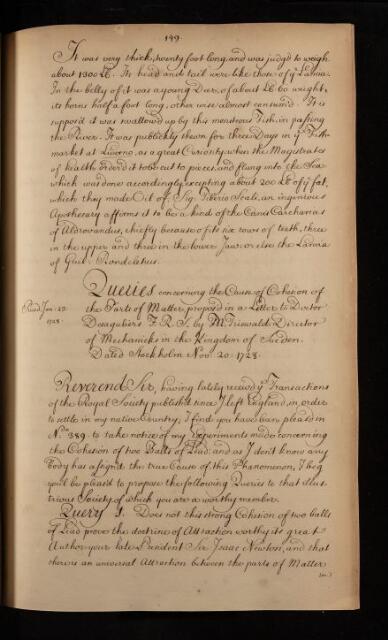 149.
It was very thick, twenty foot long, and was judg'd to weigh
about 1300 lb. Its head and tail were like those of yᵉ Lamia.
In the belly of it was a young Deer, of about lb 60 weight,
its horns half a foot long, otherwise almost consum'd. It is
suppos'd it was swallowed up by this monstrous Fish, in passing
the River. It was publickly shewn for three Days in yᵉ Fish-
market at Livorno, as a great Curiosity when the Magistrates
of health order'd it to be cut to pieces, and flung into the Sea
which was done accordingly, excepting about 200 lb of yᵉ fat,
which they made Oil of. Sig. Tiberio Scali, an ingenious
Apothecary affirms it to be a kind of the Canis Carcharias
of Aldrovandus, chiefly because of its six rows of teeth, three
in the upper and three in the lower Jaw, or else the Lamia
of Guil. Rondeletius.
Queries concerning the Cause of Cohesion of
the Parts of Matter, propos'd in a Letter to Doctor
Desaguliers F.R.S. by Mr. Triewald Director
of Mechanicks in the Kingdom of Sweden.
Dated Stockholm Nov. 20. 1728.
Read Jan.
1728.
Reverend Sir, having lately receiv'd yᵉ Transactions
of the Royal Society publish'd since I left England, in order
to settle in my native Country, I find you have been pleas'd in
N.º 389. to take notice of my Experiments made concerning
the Cohesion of two Balls of Lead, and as I don't know any
Body has assign'd the true Cause of this Phenomenon, I beg
you'l be pleas'd to propose the following Queries to that illus-
trious Society of which you are a worthy member.
Query 1. Does not this strong Cohesion of two balls
of Lead prove the doctrine of Attraction worthy its great
Author your late President Sir Isaac Newton, and that
there is an universal Attraction between the parts of Matter